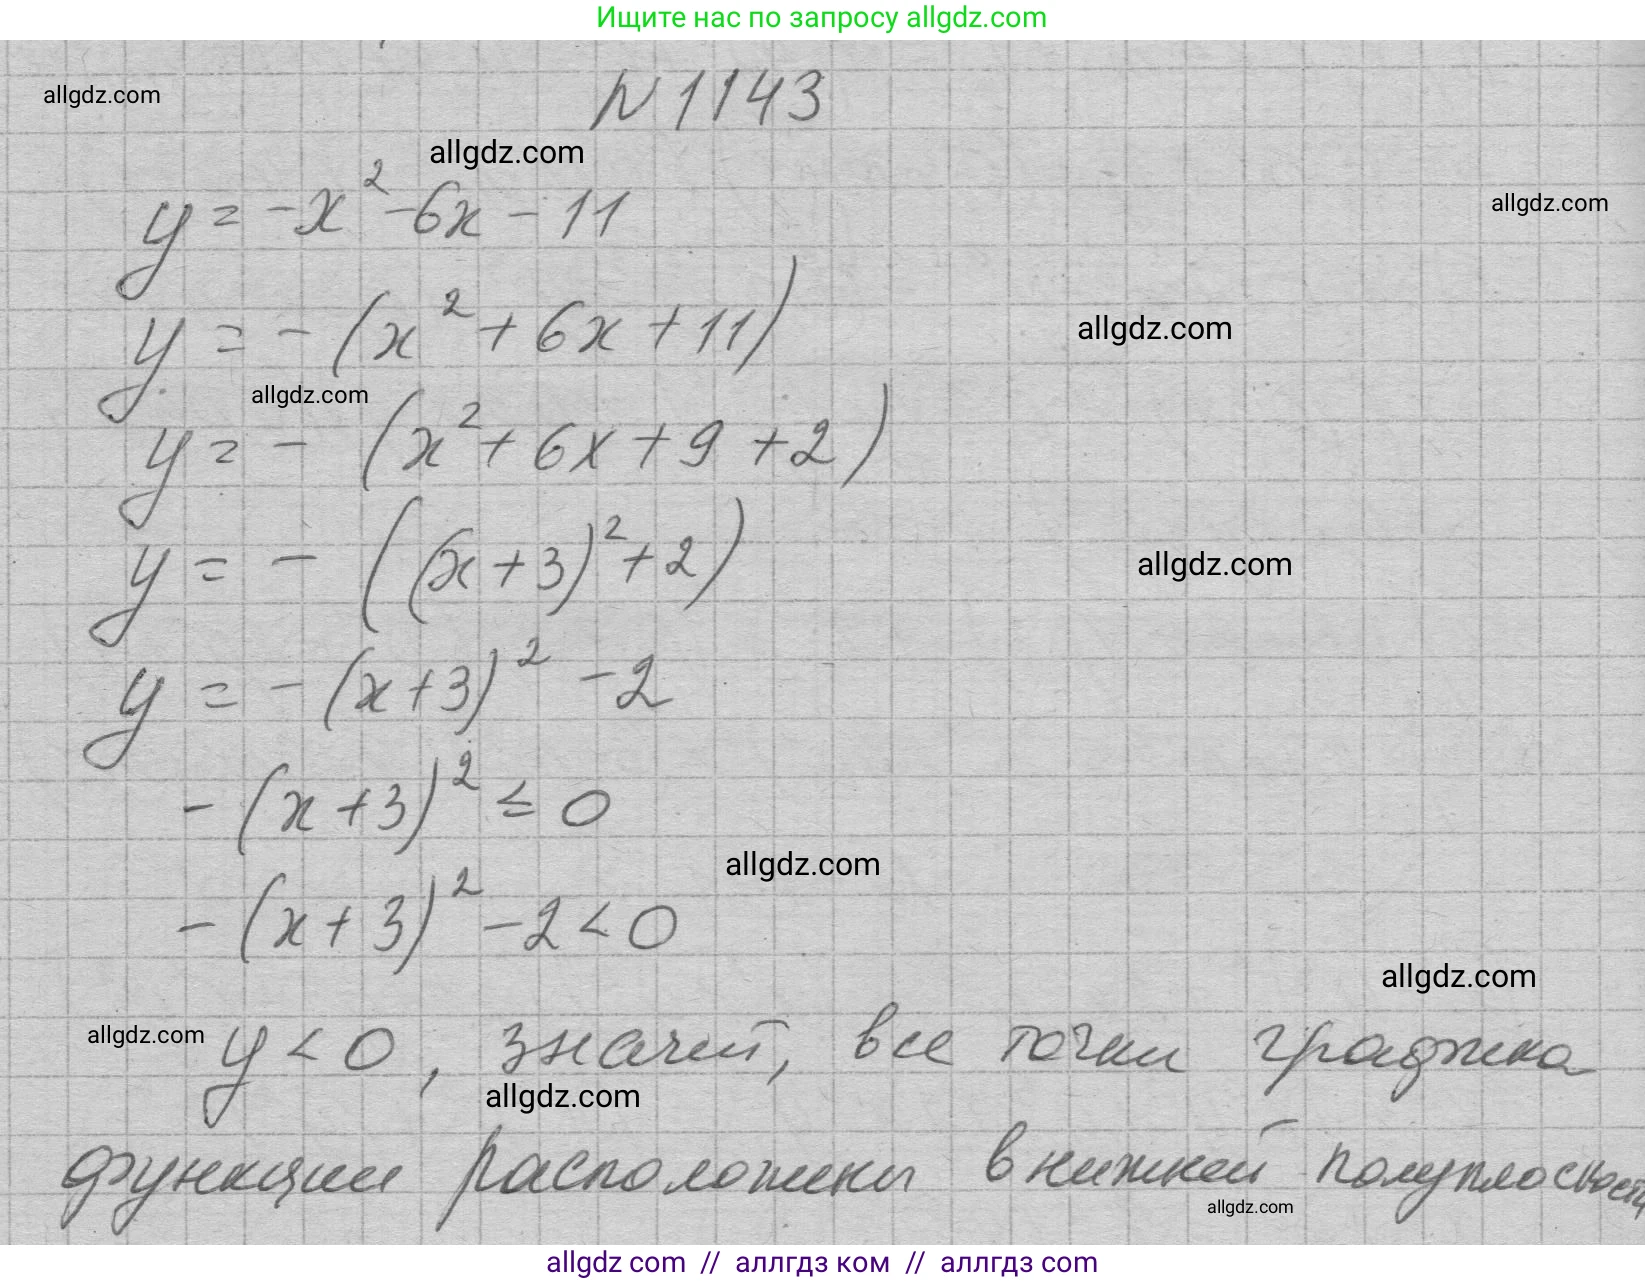 Ищите нас по запросу allgdz.com
allgdz.com
N 1143
allgdz.com
y = -x² - 6x - 11
allgdz.com
y = - (x² + 6x + 11)
allgdz.com
allgdz.com
y = - (x² + 6x + 9 + 2)
y = - ((x + 3)² + 2)
allgdz.com
y = - (x + 3)² - 2
- (x + 3)² ≤ 0
allgdz.com
- (x + 3)² - 2 < 0
allgdz.com
allgdz.com
y < 0, значит, все точки графика
allgdz.com
функции расположены в нижней полуплоскости
allgdz.com
allgdz com // аллгдз ком // аллгдз com